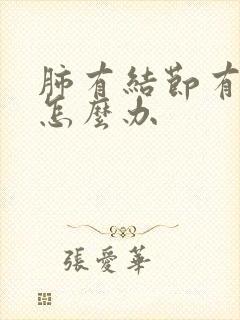 肺有結節有
怎麼办
張愛華